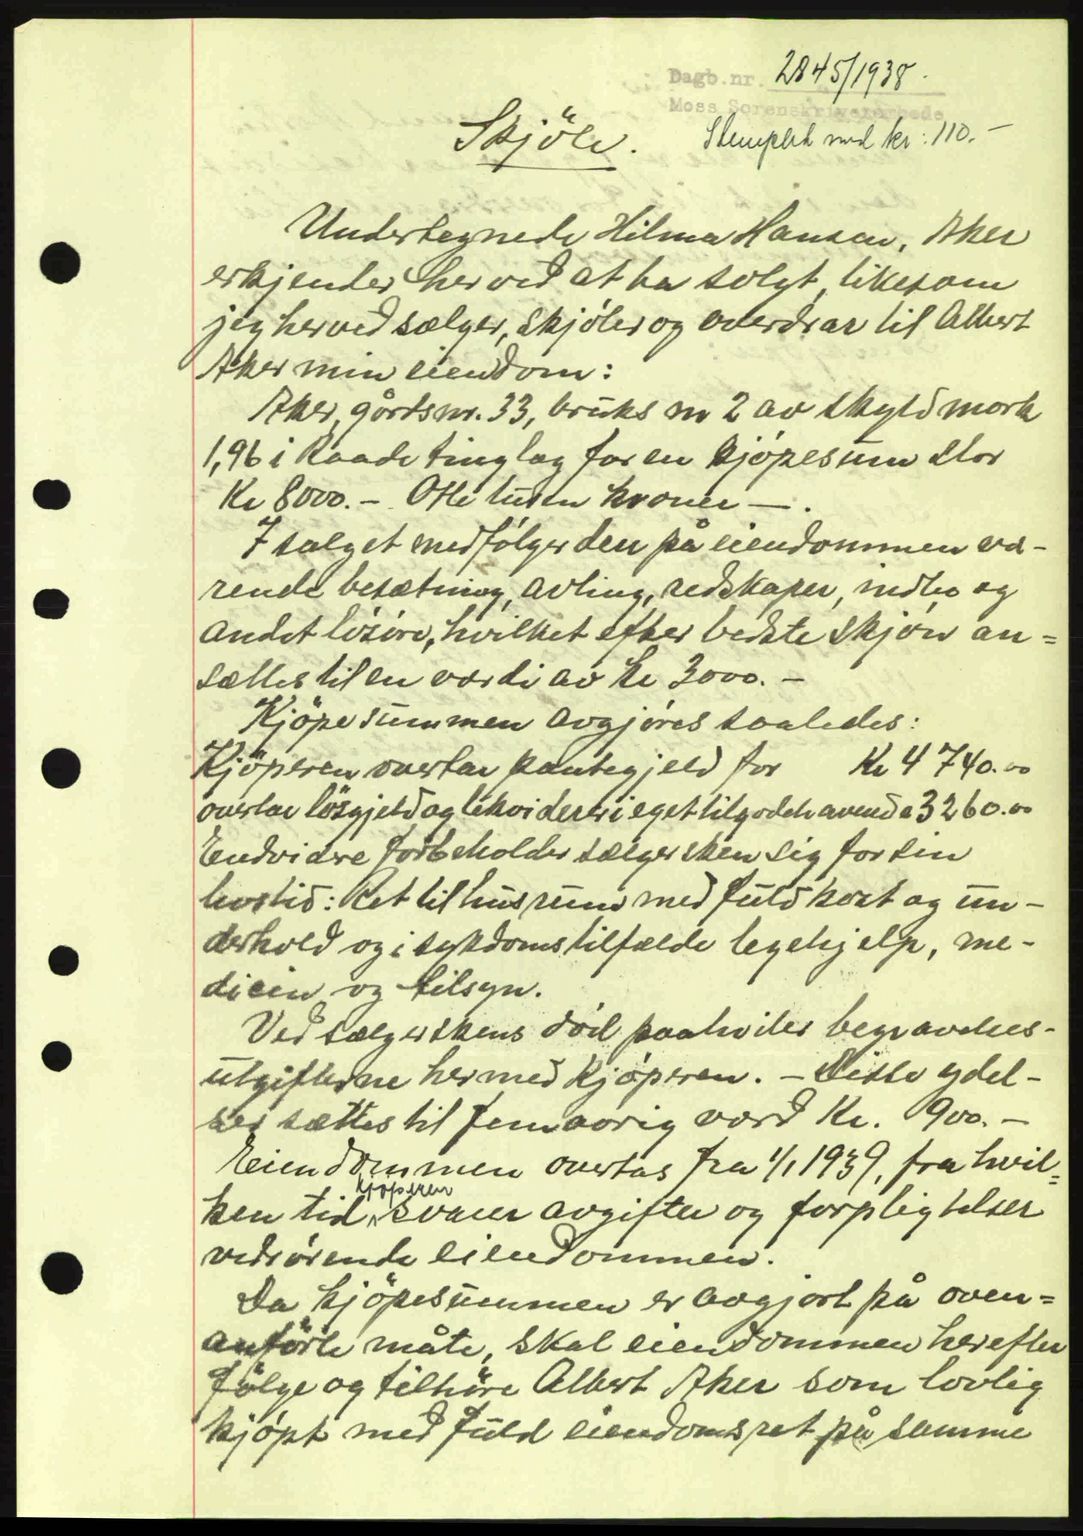 Dagb.nr. 2845/1938.
Moss Sorenskriverembede
Skjöte. Stemplet med kr: 110.-
Undertegnede Hilma Hansen, Aker
erkjender herved at ha solgt, likesom
jeg herved sælger, skjöter og overdrar til Albert
Aker min eiendom:
Aker, gårdsnr. 33, bruks nr 2 av skyld mark
1,96 i Raade tinglag for en kjöpesum stor
Kr 8000.- Otte tusen kroner - .
I salget medfölger den på eiendommen væ-
rende besætning, avling, redskaper, indbo og
andet lösöre, hvilket efter bedste skjön an=
sættes til en værdi av kr 3000.-
Kjöpesummen avgjöres saaledes:
Kjöperen overtar pantegjeld for Kr 4740.00
overtar lösgjeld og likviderer i eget tilgodehavende 3260.00
Endvidere forbeholder sælgersken sig for sin
livstid: Ret til husrum med fuld kost og un-
derhold og i sykdomstilfælde legehjelp, me-
dicin og tilsyn.
Ved sælgerskens död paahviler begravelses-
utgifterne hermed kjöperen. - Disse ydel-
ser sættes til femaarig værd Kr. 900.-
Eiendommen overtas fra 1/1 1939, fra hvil=
ken tid kjöperen svarer avgifter og forpligtelser
vedrörende eiendommen.
Da kjöpesummen er avgjort på oven=
anförte måte, skal eiendommen herefter
fölge og tilhöre Albert Aker som lovlig
kjöpt med fuld eiendomsret på samme